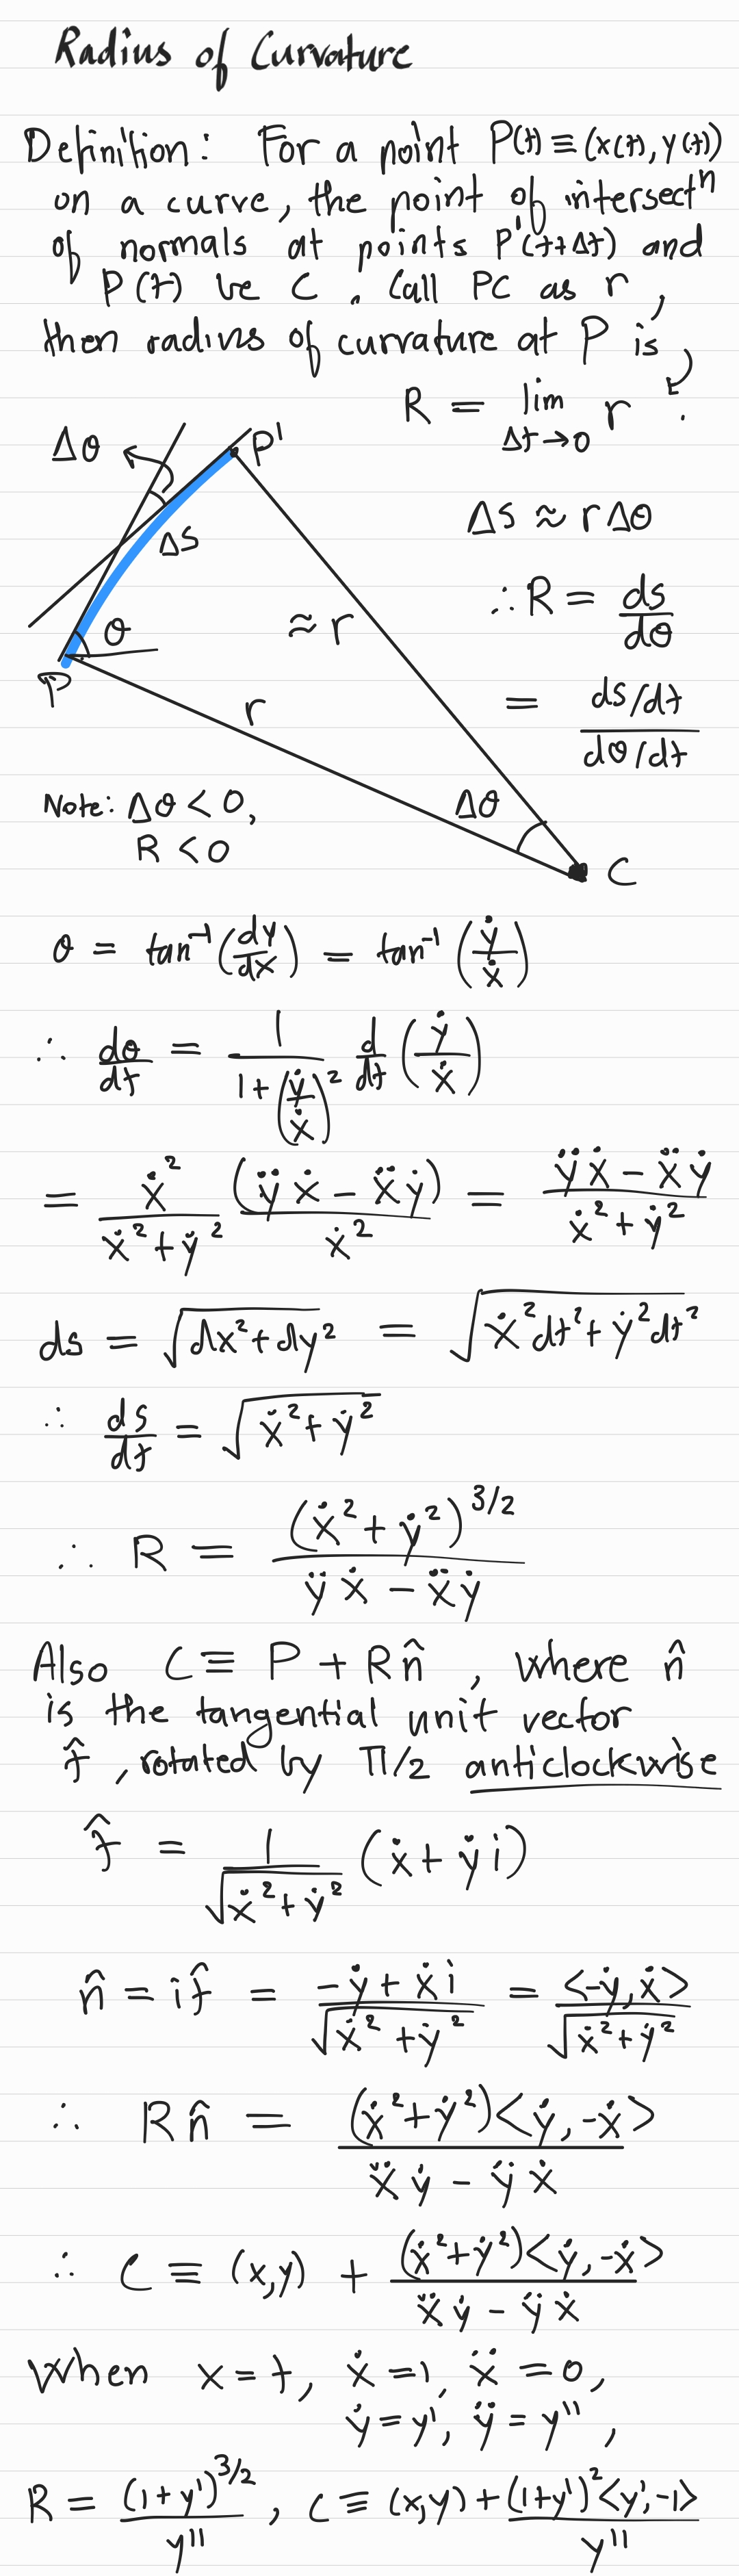 Radius of Curvature
Definition: For a point P(t) ≡ (x(t), y(t))
on a curve, the point of intersectⁿ
of normals at points P'(t+Δt) and
P(t) be C. Call PC as r,
then radius of curvature at P is,
R = lim_{Δt→0} r.
Δθ
P'
Δs
Δs ≈ rΔθ
θ
≈ r
∴ R = ds/dθ
P
r
= (ds/dt)/(dθ/dt)
Note: Δθ < 0,
R < 0
Δθ
C
θ = tan⁻¹(dy/dx) = tan⁻¹(ẏ/ẋ)
∴ dθ/dt = 1/(1+(ẏ/ẋ)²) d/dt (ẏ/ẋ)
= ẋ²/(ẋ²+ẏ²) (ÿẋ − ẍẏ)/ẋ² = (ÿẋ − ẍẏ)/(ẋ²+ẏ²)
ds = √(dx²+dy²) = √(ẋ²dt²+ẏ²dt²)
∴ ds/dt = √(ẋ²+ẏ²)
∴ R = (ẋ²+ẏ²)^{3/2}/(ÿẋ − ẍẏ)
Also C ≡ P + Rn̂, where n̂
is the tangential unit vector
t̂, rotated by π/2 anticlockwise
t̂ = 1/√(ẋ²+ẏ²) (ẋ+ẏi)
n̂ = it̂ = (−ẏ+ẋi)/√(ẋ²+ẏ²) = <−ẏ,ẋ>/√(ẋ²+ẏ²)
∴ Rn̂ = (ẋ²+ẏ²)<ẏ,−ẋ>/(ẍẏ − ÿẋ)
∴ C ≡ (x,y) + (ẋ²+ẏ²)<ẏ,−ẋ>/(ẍẏ − ÿẋ)
When x = t, ẋ = 1, ẍ = 0,
ẏ = y', ÿ = y'',
R = (1+y')^{3/2}/y'', C ≡ (x,y) + (1+y')²<y',−1>/y''